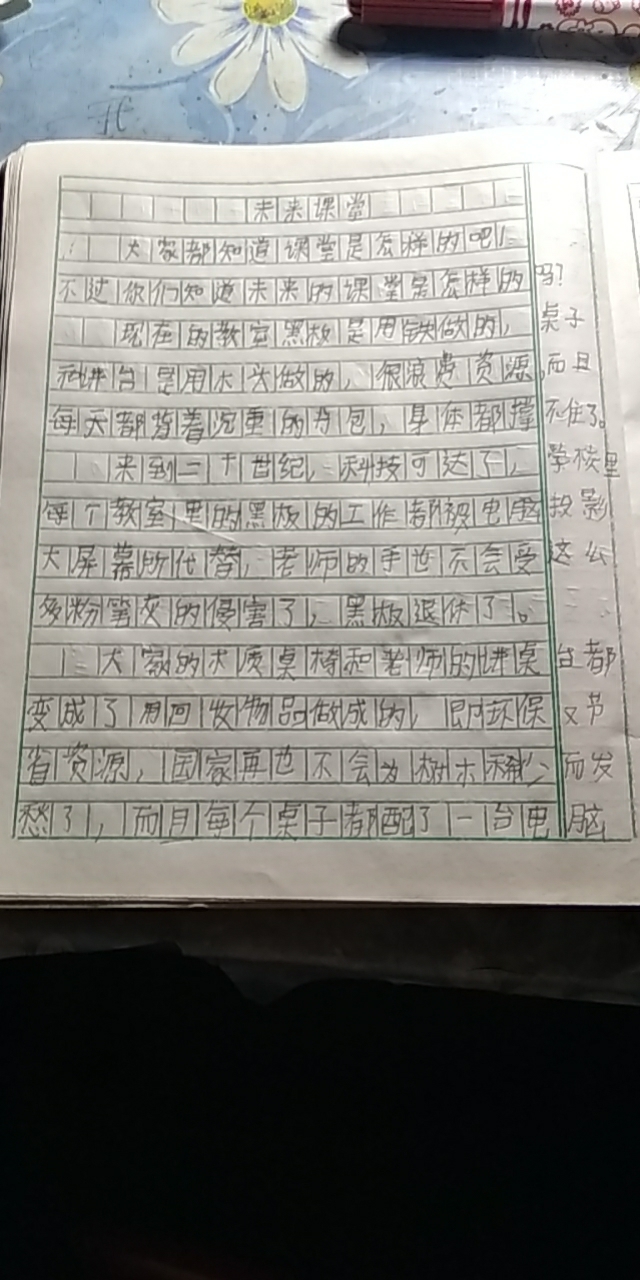 未来课堂
大家都知道课堂是怎样的吧！
不过你们知道未来的课堂是怎样的吗？
现在的教室黑板是用铁做的，桌子
和讲台是用木头做的，很浪费资源，而且
每天都背着沉重的书包，身体都撑不住了。
来到二十世纪，科技可达了，学校里
每个教室里的黑板的工作都被电脑投影
大屏幕所代替，老师的手也不会受这么
多粉笔灰的侵害了，黑板退休了。
大家的木质桌椅和老师的讲桌台都
变成了用回收物品做成的，即环保又节
省资源，国家再也不会为树木稀少而发
愁了，而且每个桌子都配了一台电脑